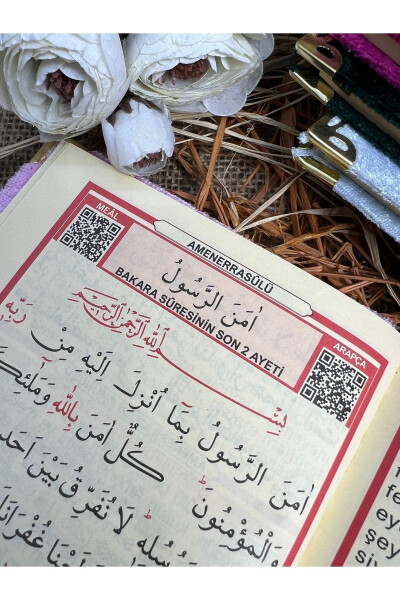 AMENERRASÛLÜ
MEÂL
اٰمَنَ الرَّسُولُ
BAKARA SÛRESİNİN SON 2 AYETİ
ARAPÇA
بِسْمِ اللّٰهِ الرَّحْمٰنِ الرَّحِيمِ
اٰمَنَ الرَّسُولُ بِمَٓا اُنْزِلَ اِلَيْهِ مِنْ رَبِّه۪
وَالْمُؤْمِنُونَۜ كُلٌّ اٰمَنَ بِاللّٰهِ
لَا نُفَرِّقُ بَيْنَ
fe
ey
şey
siy